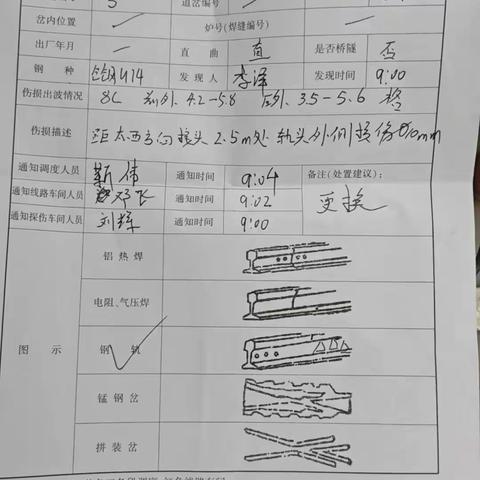 岔内位置 — 炉号(焊缝编号) —
出厂年月 — 直 曲 直 是否桥隧 否
钢 种 U74 发 现 人 李泽 发现时间 9:00
伤损出波情况 8L 4.2-5.8 3.5-5.6
伤损描述 接头 2.5m处 轨头外侧
通知调度人员 靳伟 通知时间 9:04 备注(处置建议):
通知线路车间人员 邓飞 通知时间 9:02 更换
通知探伤车间人员 刘辉 通知时间 9:00
铝 热 焊
电阻、气压焊
图 示 钢 轨
锰 钢 岔
拼 装 岔